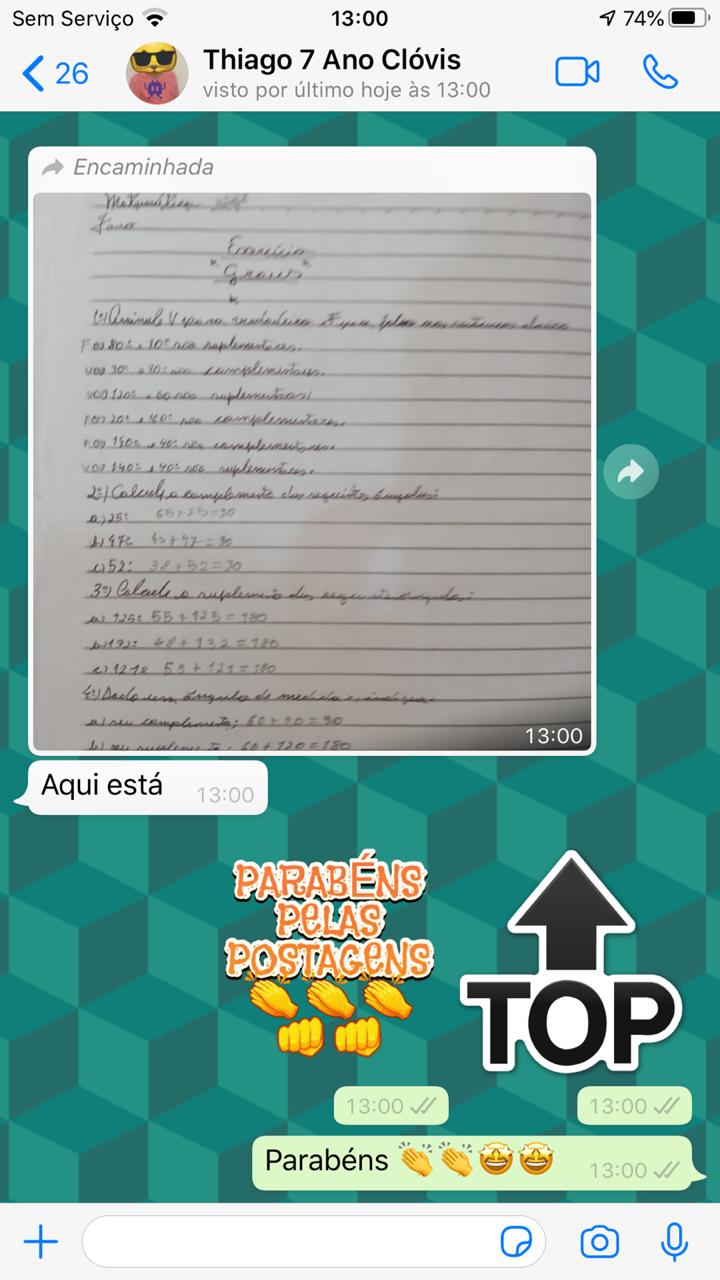 Sem Serviço 13:00 74%
26 Thiago 7 Ano Clóvis
visto por último hoje às 13:00
Encaminhada
Matemática
Exercício
Graus
1º) Assinale V para verdadeiro F para falso nas
F 80º e 10º são suplementares.
V 30º são complementares.
V 120º e 60 são suplementares;
F 20º e 160º são complementares.
F 140º e 40º são complementares.
V 140º e 40º são suplementares.
2º) Calcule o complemento dos seguintes ângulos:
a) 25º 65+25=90
b) 47º 43+47=90
c) 52º 38+52=90
3º) Calcule o suplemento dos seguintes ângulos:
a) 125º 55+125=180
b) 132º 48+132=180
c) 121º 59+121=180
4º) Dado um ângulo de medida x, indique:
a) seu complemento;
b) seu suplemento: 60+120=180
13:00
Aqui está 13:00
PARABÉNS
PELAS
POSTAGENS
TOP
13:00 13:00
Parabéns 👏👏🤩🤩 13:00